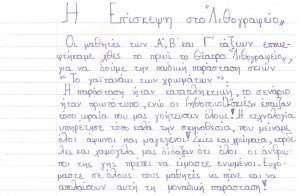 Η Επίσκεψη στο "Λιθογραφείο"
Οι μαθητές των Α', Β' και Γ' τάξεων επισκε-
φτήκαμε χθες το πρωί το Θέατρο "Λιθογραφείο",
για να δούμε την παιδική παράσταση σκιών
"Το γαϊτανάκι των χρωμάτων".
Η παράσταση ήταν καταπληκτική, το σενάριο
ήταν πρωτότυπο, ενώ οι ηθοποιοί έπαιξαν
τόσο ωραία που μας γοήτευσαν όλους! Η τεχνολογία
υπηρέτησε τόσο καλά την σκηνοθεσία, που μείναμε
όλοι άφωνοι και μαγεμένοι! Ζωές και χρώματα, καρδιές
και χαμόγελα μας δίδαξαν ότι όλοι οι άνθρω-
ποι της γης πρέπει να είμαστε ενωμένοι. Ευχό-
μαστε σε όλους τους μαθητές να πάνε και να
απολαύσουν αυτή τη μοναδική παράσταση!